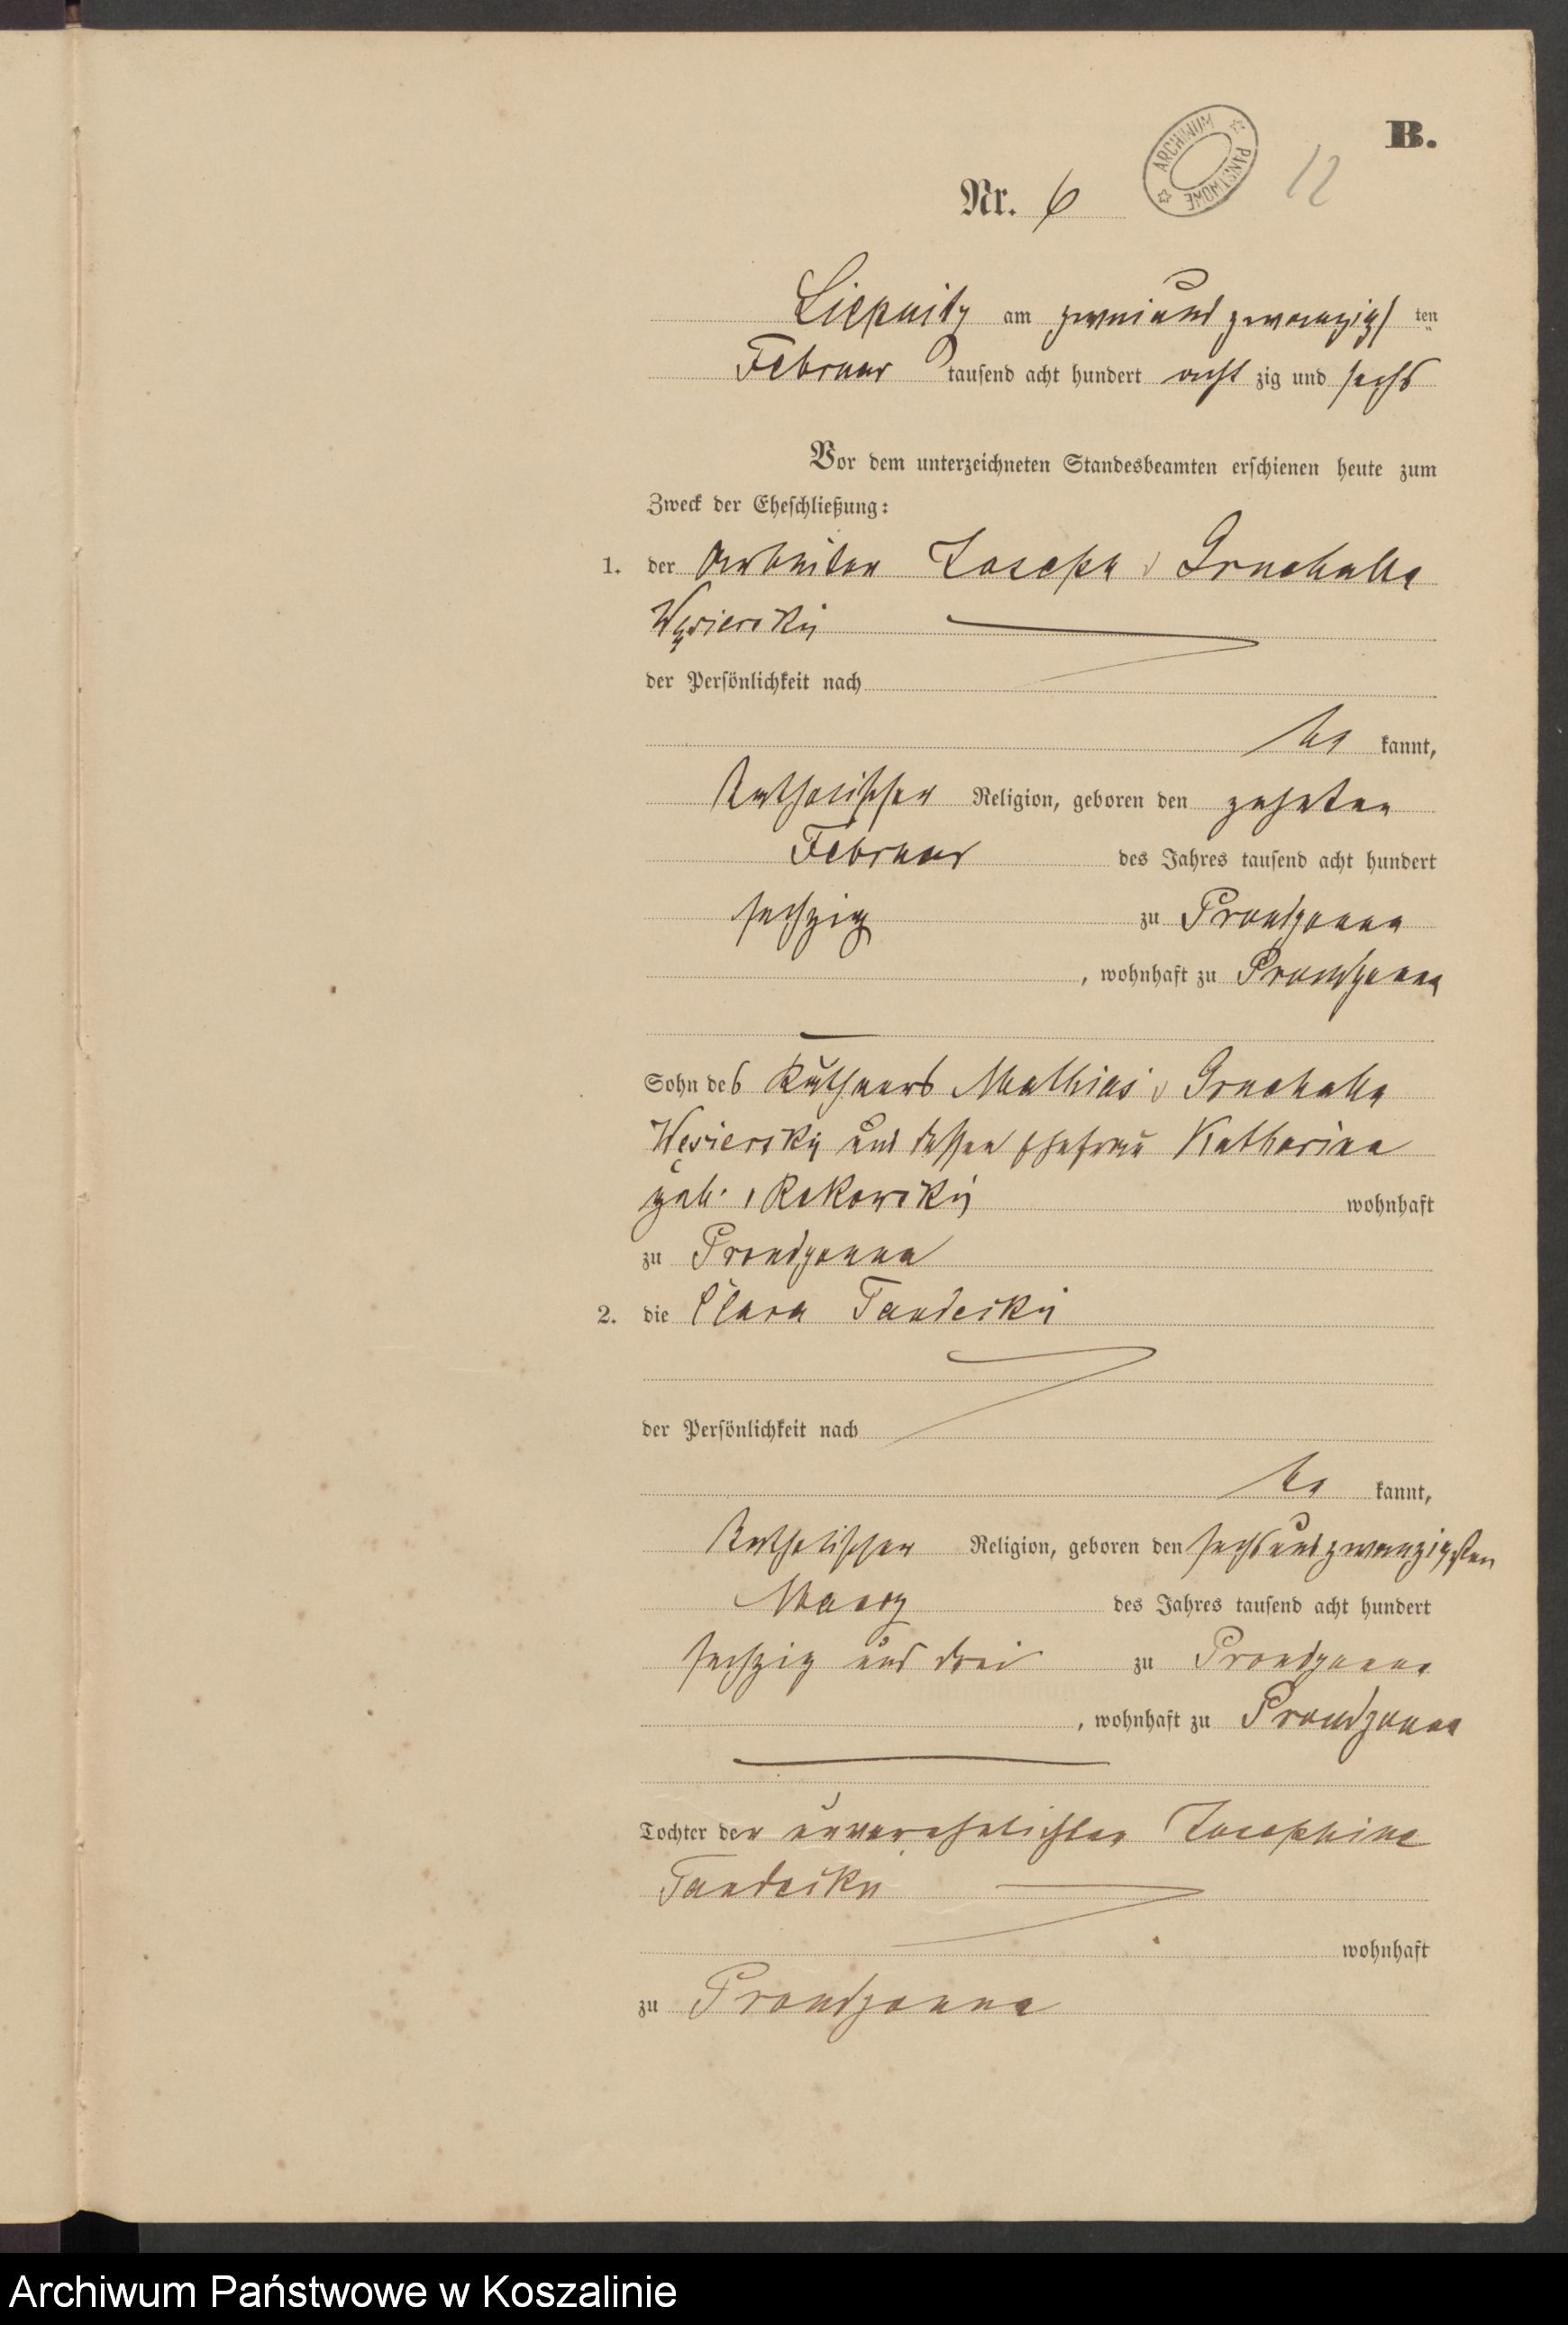 B.
ARCHIWUM PAŃSTWOWE
12
Nr. 6
Liepnitz am zweiundzwanzigs ten
Februar tausend acht hundert acht zig und sechs
Vor dem unterzeichneten Standesbeamten erschienen heute zum
Zweck der Eheschließung:
1. der Arbeiter Joseph v
Węsierski
der Persönlichkeit nach
be kannt,
katholischer Religion, geboren den zehnten
Februar des Jahres tausend acht hundert
sechzig zu Prondzonna
, wohnhaft zu Prondzonna
Sohn des Käthners Mathias v
Węsierski und dessen Ehefrau Katharina
geb. v Rekowski wohnhaft
zu Prondzonna
2. die Clara Tandecki
der Persönlichkeit nach
be kannt,
katholischer Religion, geboren den sechsundzwanzigsten
Maerz des Jahres tausend acht hundert
sechzig und drei zu Prondzonna
, wohnhaft zu Prondzonna
Tochter der unverehelichten Josephine
Tandecki
wohnhaft
zu Prondzonna
Archiwum Państwowe w Koszalinie